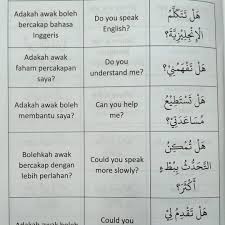 Adakah awak boleh
bercakap bahasa
Inggeris
Do you speak
English?
هَلْ تَتَكَلَّمُ
الإِنْجِلِيزِيَّةَ؟
Adakah awak
faham percakapan
saya?
Do you
understand me?
هَلْ تَفْهَمُنِي؟
Adakah awak boleh
membantu saya?
Can you help
me?
هَلْ تَسْتَطِيعُ
مُسَاعَدَتِي؟
Bolehkah awak
bercakap dengan
lebih perlahan?
Could you speak
more slowly?
هَلْ تُمْكِنُ
التَّحَدُّثُ بِبُطْءٍ
أَكْثَرَ؟
Adakah awak boleh
Could you
هَلْ تُقَدِّمُ لِي